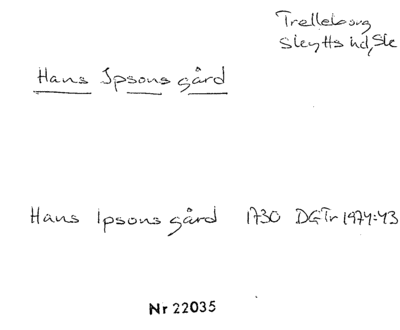 Trelleborg
Skytts hd, Sk
Hans Ipsons gård
Hans Ipsons gård 1730 DGTr 1974:43
Nr 22035